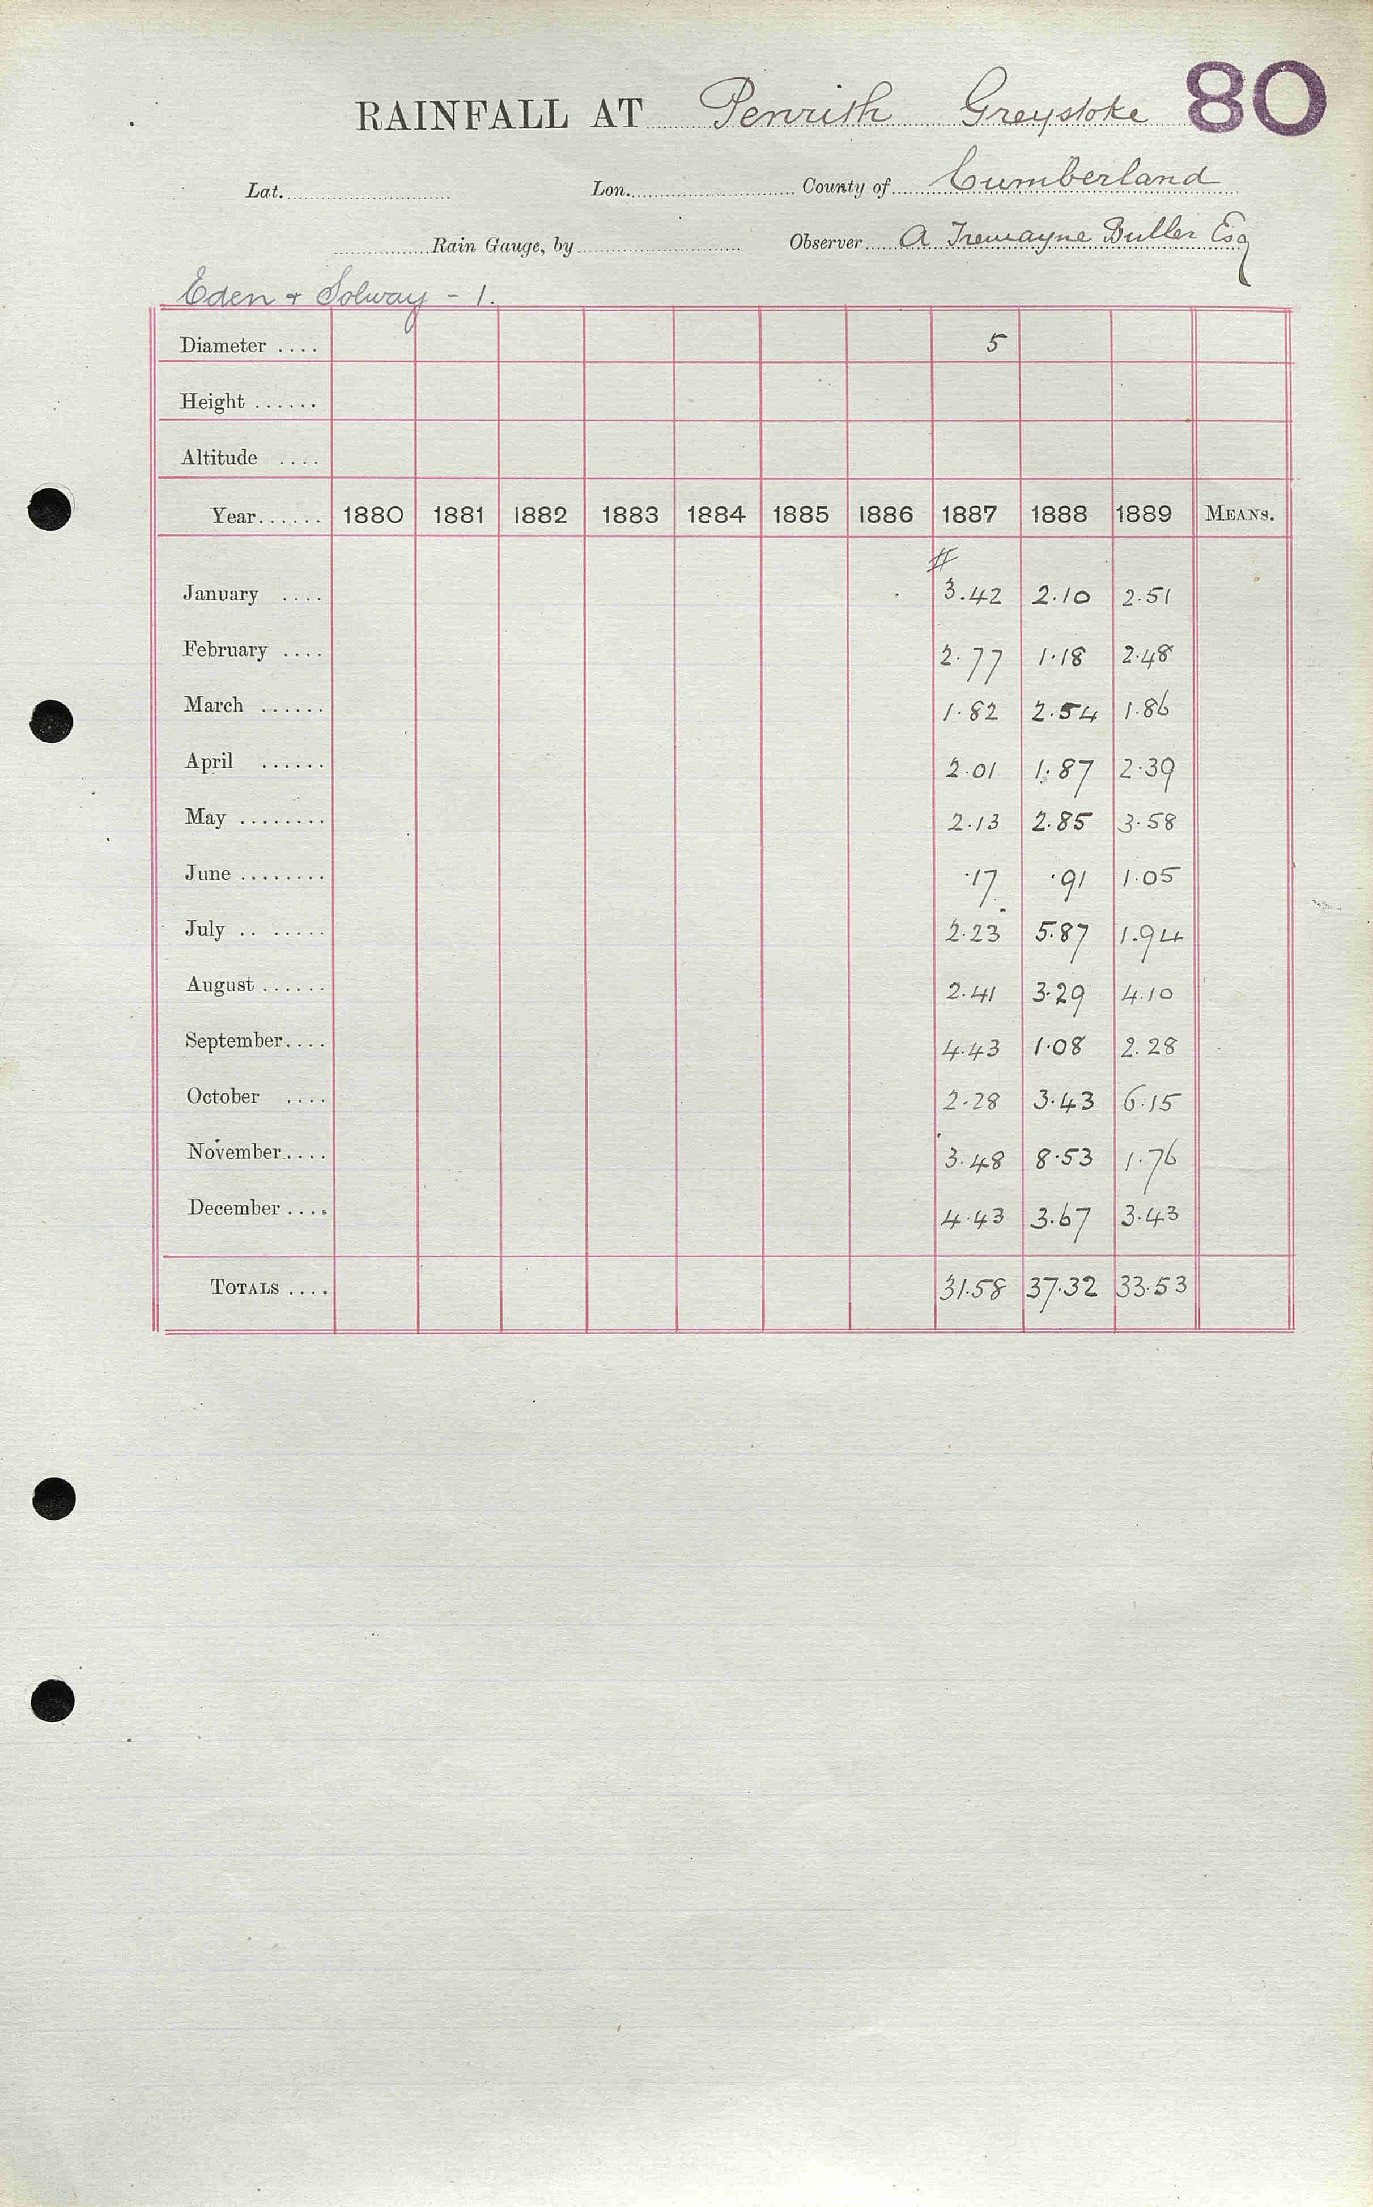 RAINFALL AT Penrith Greystoke 80
Lat. Lon. County of Cumberland
Rain Gauge, by Observer A Tremayne Buller Esq
Eden + Solway - 1.
Diameter .... 5
Height ......
Altitude ....
Year...... 1880 1881 1882 1883 1884 1885 1886 1887 1888 1889 MEANS.
#
January .... 3.42 2.10 2.51
February .... 2.77 1.18 2.48
March ...... 1.82 2.54 1.86
April ...... 2.01 1.87 2.39
May ........ 2.13 2.85 3.58
June ........ .17 .91 1.05
July .. ..... 2.23 5.87 1.94
August ...... 2.41 3.29 4.10
September.... 4.43 1.08 2.28
October .... 2.28 3.43 6.15
November.... 3.48 8.53 1.76
December .... 4.43 3.67 3.43
TOTALS .... 31.58 37.32 33.53